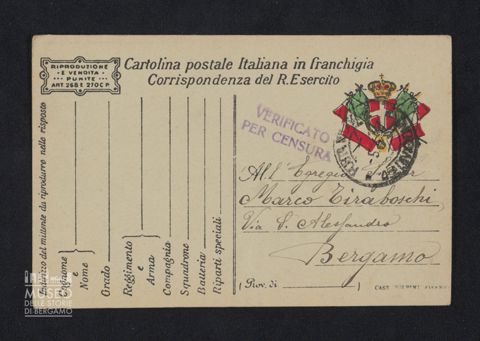 RIPRODUZIONE
E VENDITA
PUNITE
ART. 268 E 270 C.P.
Cartolina postale Italiana in franchigia
Corrispondenza del R. Esercito
VERIFICATO
PER CENSURA
All' Egregio
Marco Tiraboschi
Via S. Alessandro
Bergamo
(Prov. di
Indirizzo del mittente da riprodurre nelle risposte
Cognome
e
Nome
Grado
Reggimento
e
Arma
Compagnia
Squadrone
Batteria
Riparti speciali
MUSEO
DELLE STORIE
DI BERGAMO